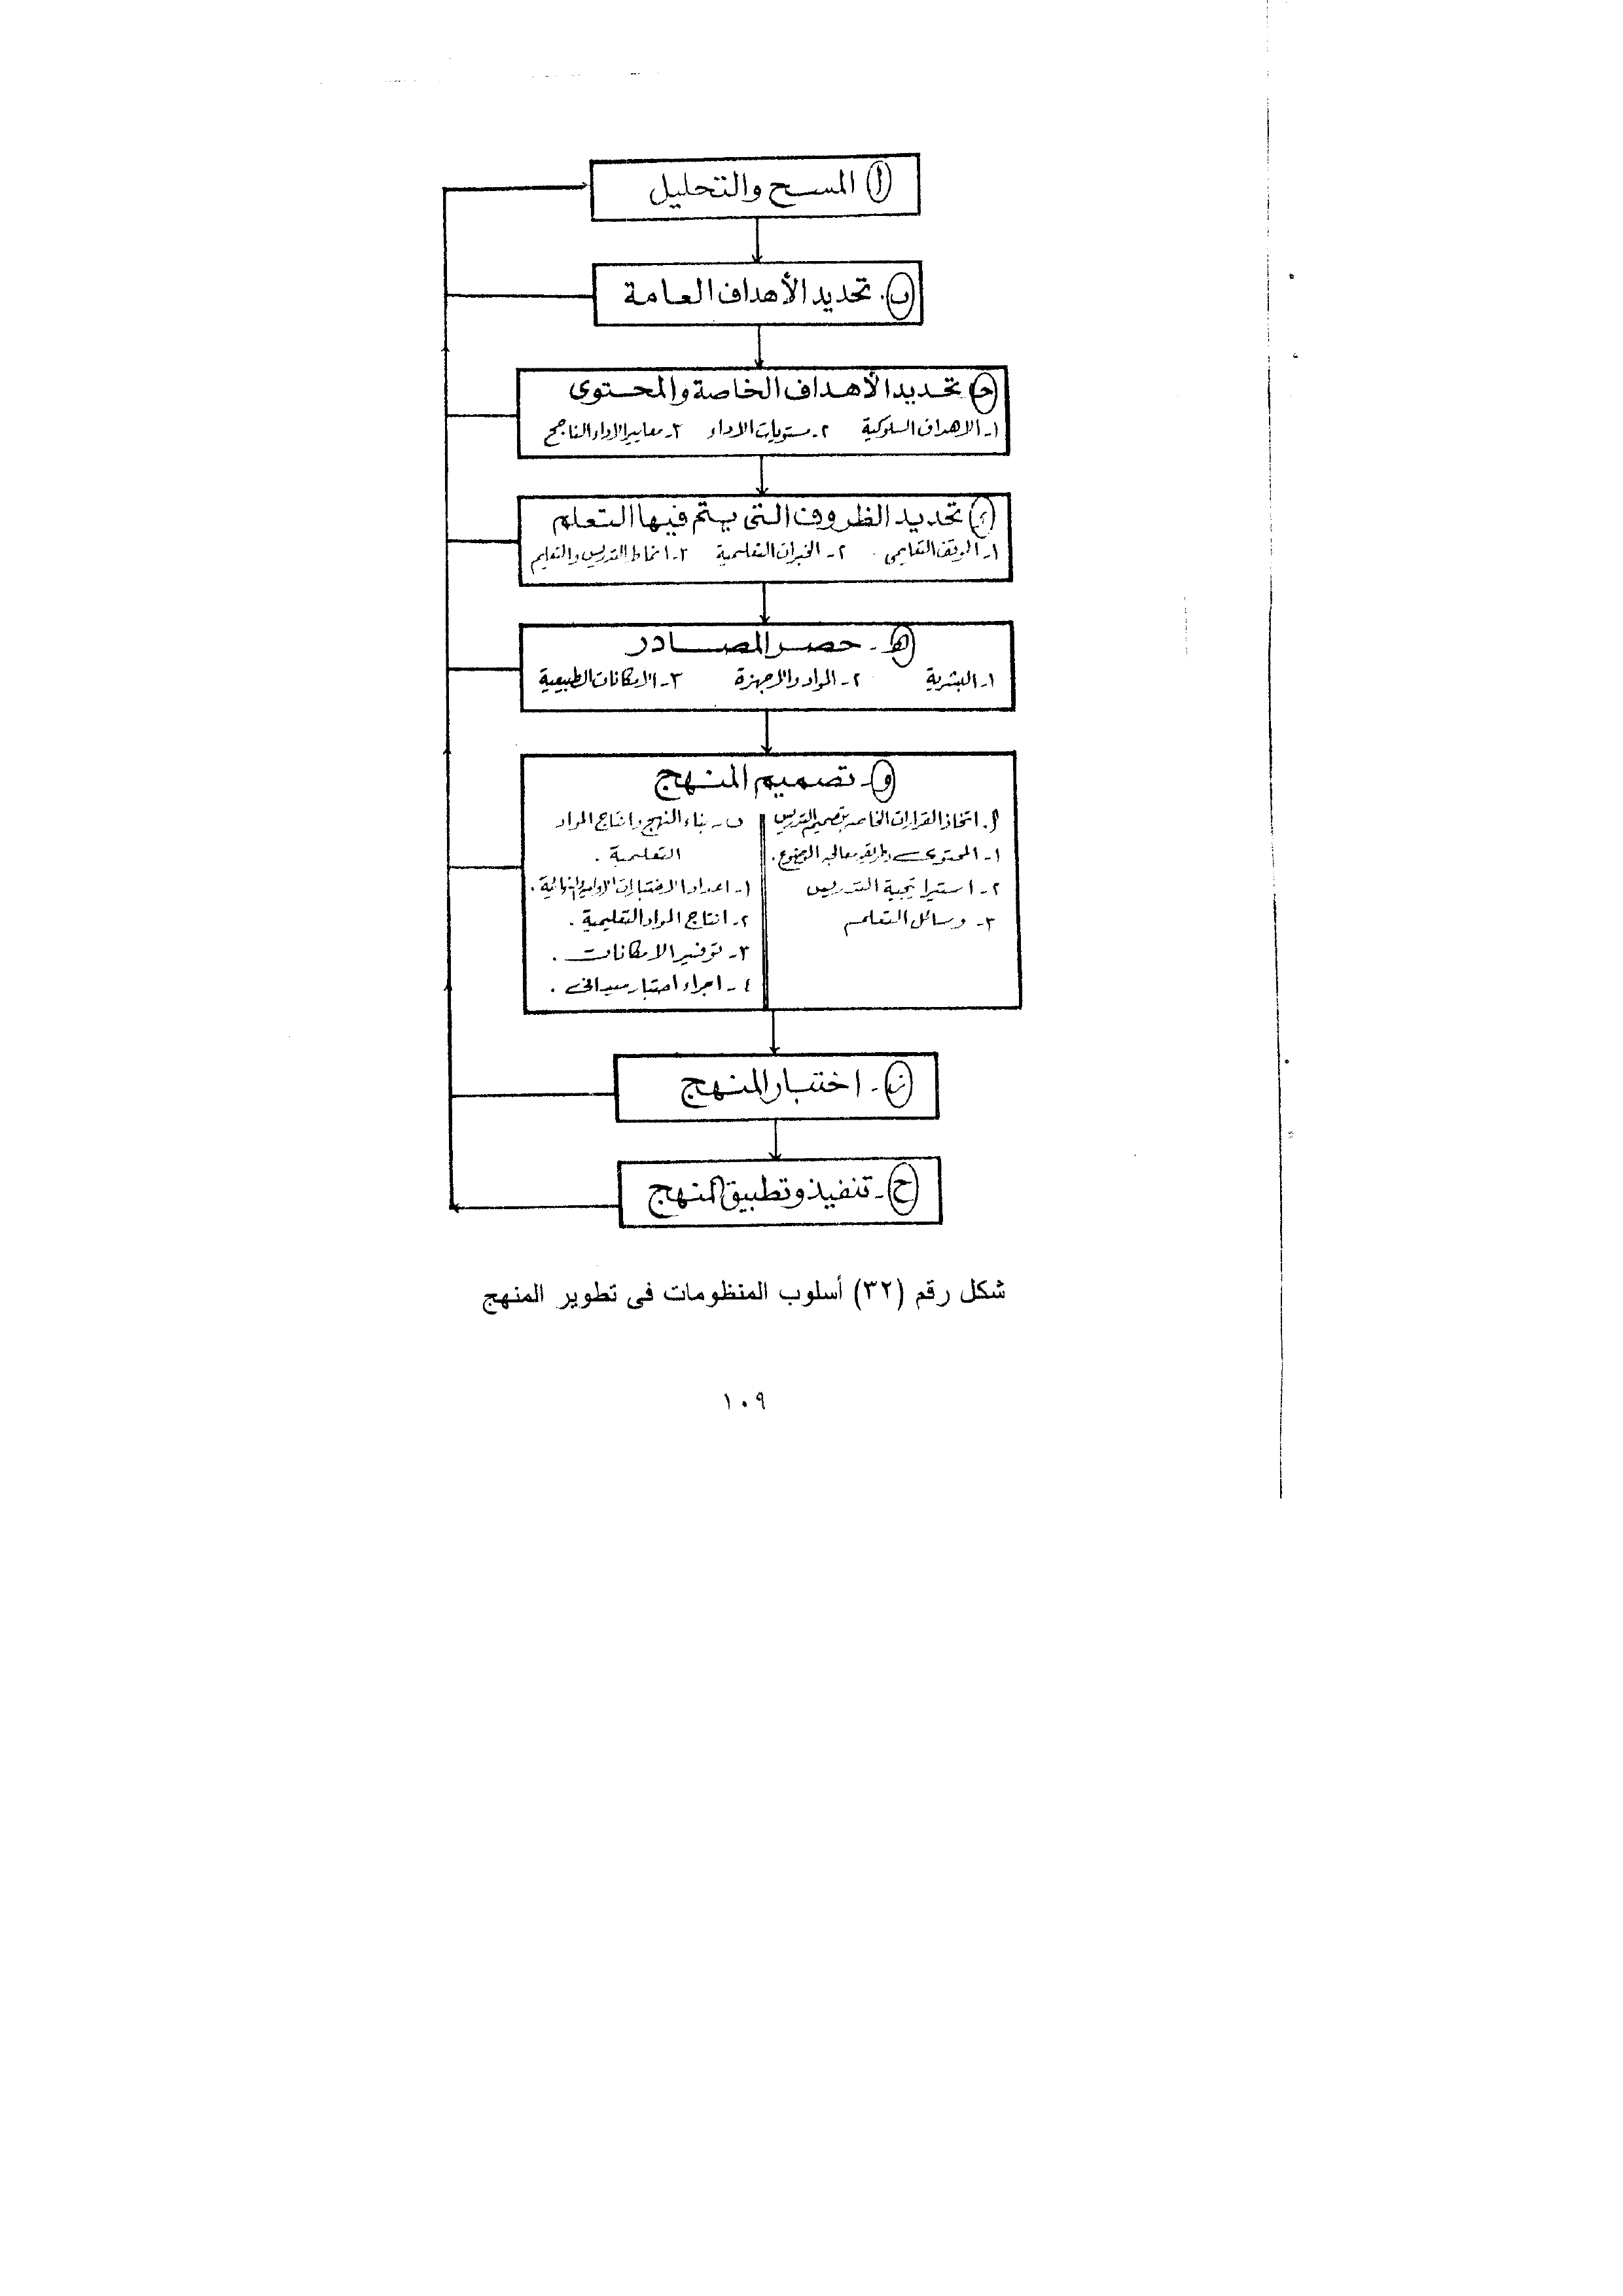 أ المسح والتحليل
ب. تحديد الأهداف العامة
حـ تحديد الأهداف الخاصة والمحتوى
١- الاهداف السلوكية ٢- مستويات الاداء ٣- معايير الاداء الناجح
د تحديد الظروف التى يتم فيها التعلم
١- الموقف التعليمى ٢- الخبرات التعليمية ٣- انماط التدريس والتعليم
هـ - حصر المصادر
١- البشرية ٢- المواد والاجهزة ٣- الامكانات الطبيعية
و- تصميم المنهج
أ. اتخاذ القرارات الخاصه بتصميم التدريس
١- المحتوى وطريقه معالجه الموضوع.
٢- استراتيجية التدريس
٣- وسائل التعلم
ب- بناء المنهج وانتاج المواد
التعليمية .
١- اعداد الاختبارات الاولية والنهائية .
٢- انتاج المواد التعليمية .
٣- توفير الامكانات .
٤- اجراء اختبار ميدانى .
ز- اختبار المنهج
ح- تنفيذ وتطبيق المنهج
شكل رقم (٣٢) أسلوب المنظومات فى تطوير المنهج
١٠٩